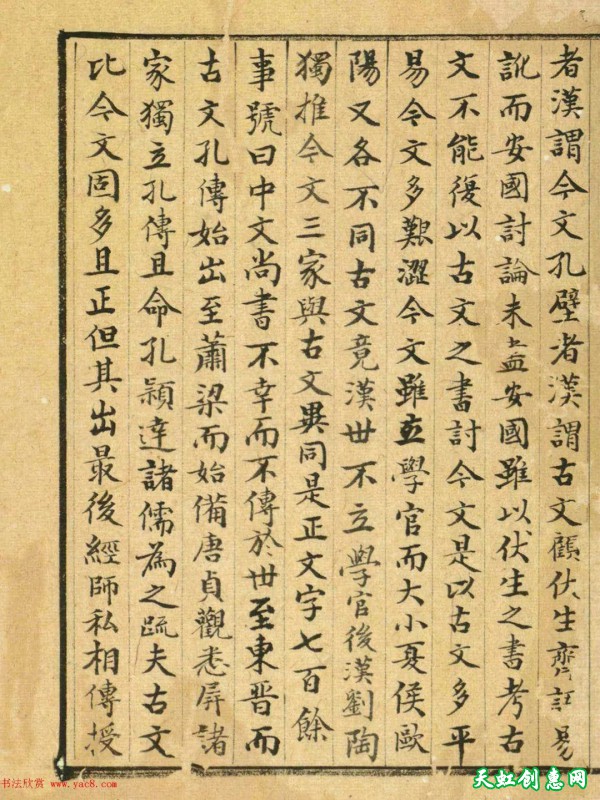 者漢謂今文孔壁者漢謂古文顧伏生齊語易
訛而安國討論未盡安國雖以伏生之書考古
文不能復以古文之書討今文是以古文多平
易今文多艱澀今文雖立學官而大小夏侯歐
陽又各不同古文竟漢世不立學官後漢劉陶
獨推今文三家與古文異同是正文字七百餘
事號曰中文尚書不幸而不傳於世至東晉而
古文孔傳始出至蕭梁而始備唐貞觀悉屏諸
家獨立孔傳且命孔穎達諸儒為之疏夫古文
比今文固多且正但其出最後經師私相傳授
书法欣赏 www.yac8.com
天虹创意网